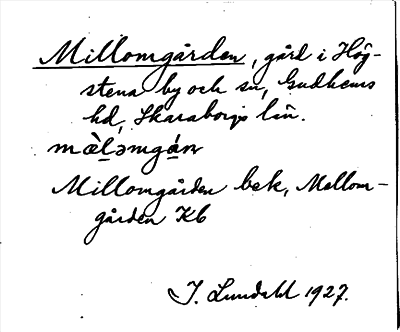 Millomgården, gård i Hög-
stena by och sn, Gudhems
hd, Skaraborgs län.
mȁl̠əmgá̠n
Millomgården bek, Mellom-
gården Kb
I. Lundahl 1927.